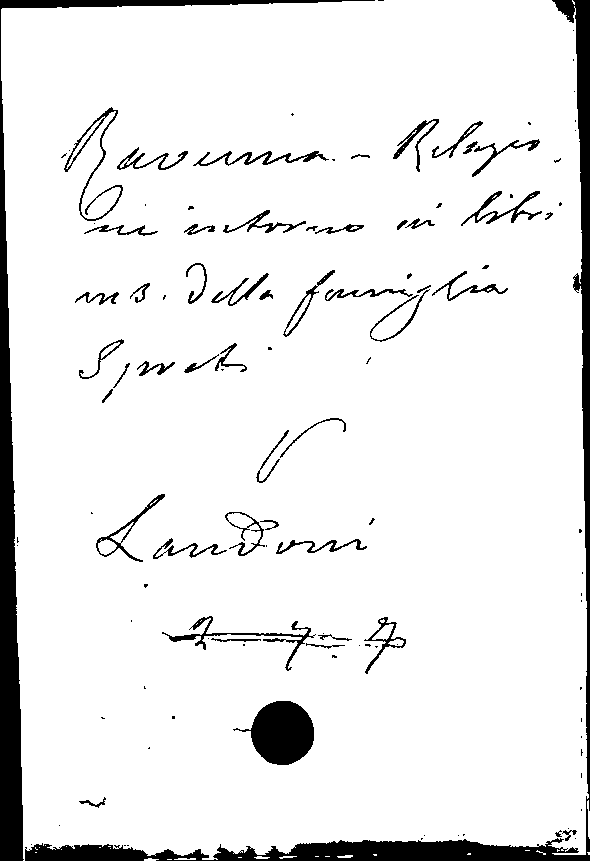 Ravenna - Relazio
ni intorno ai libri
ms. della famiglia
Spreti
V
Landoni
2 7 7